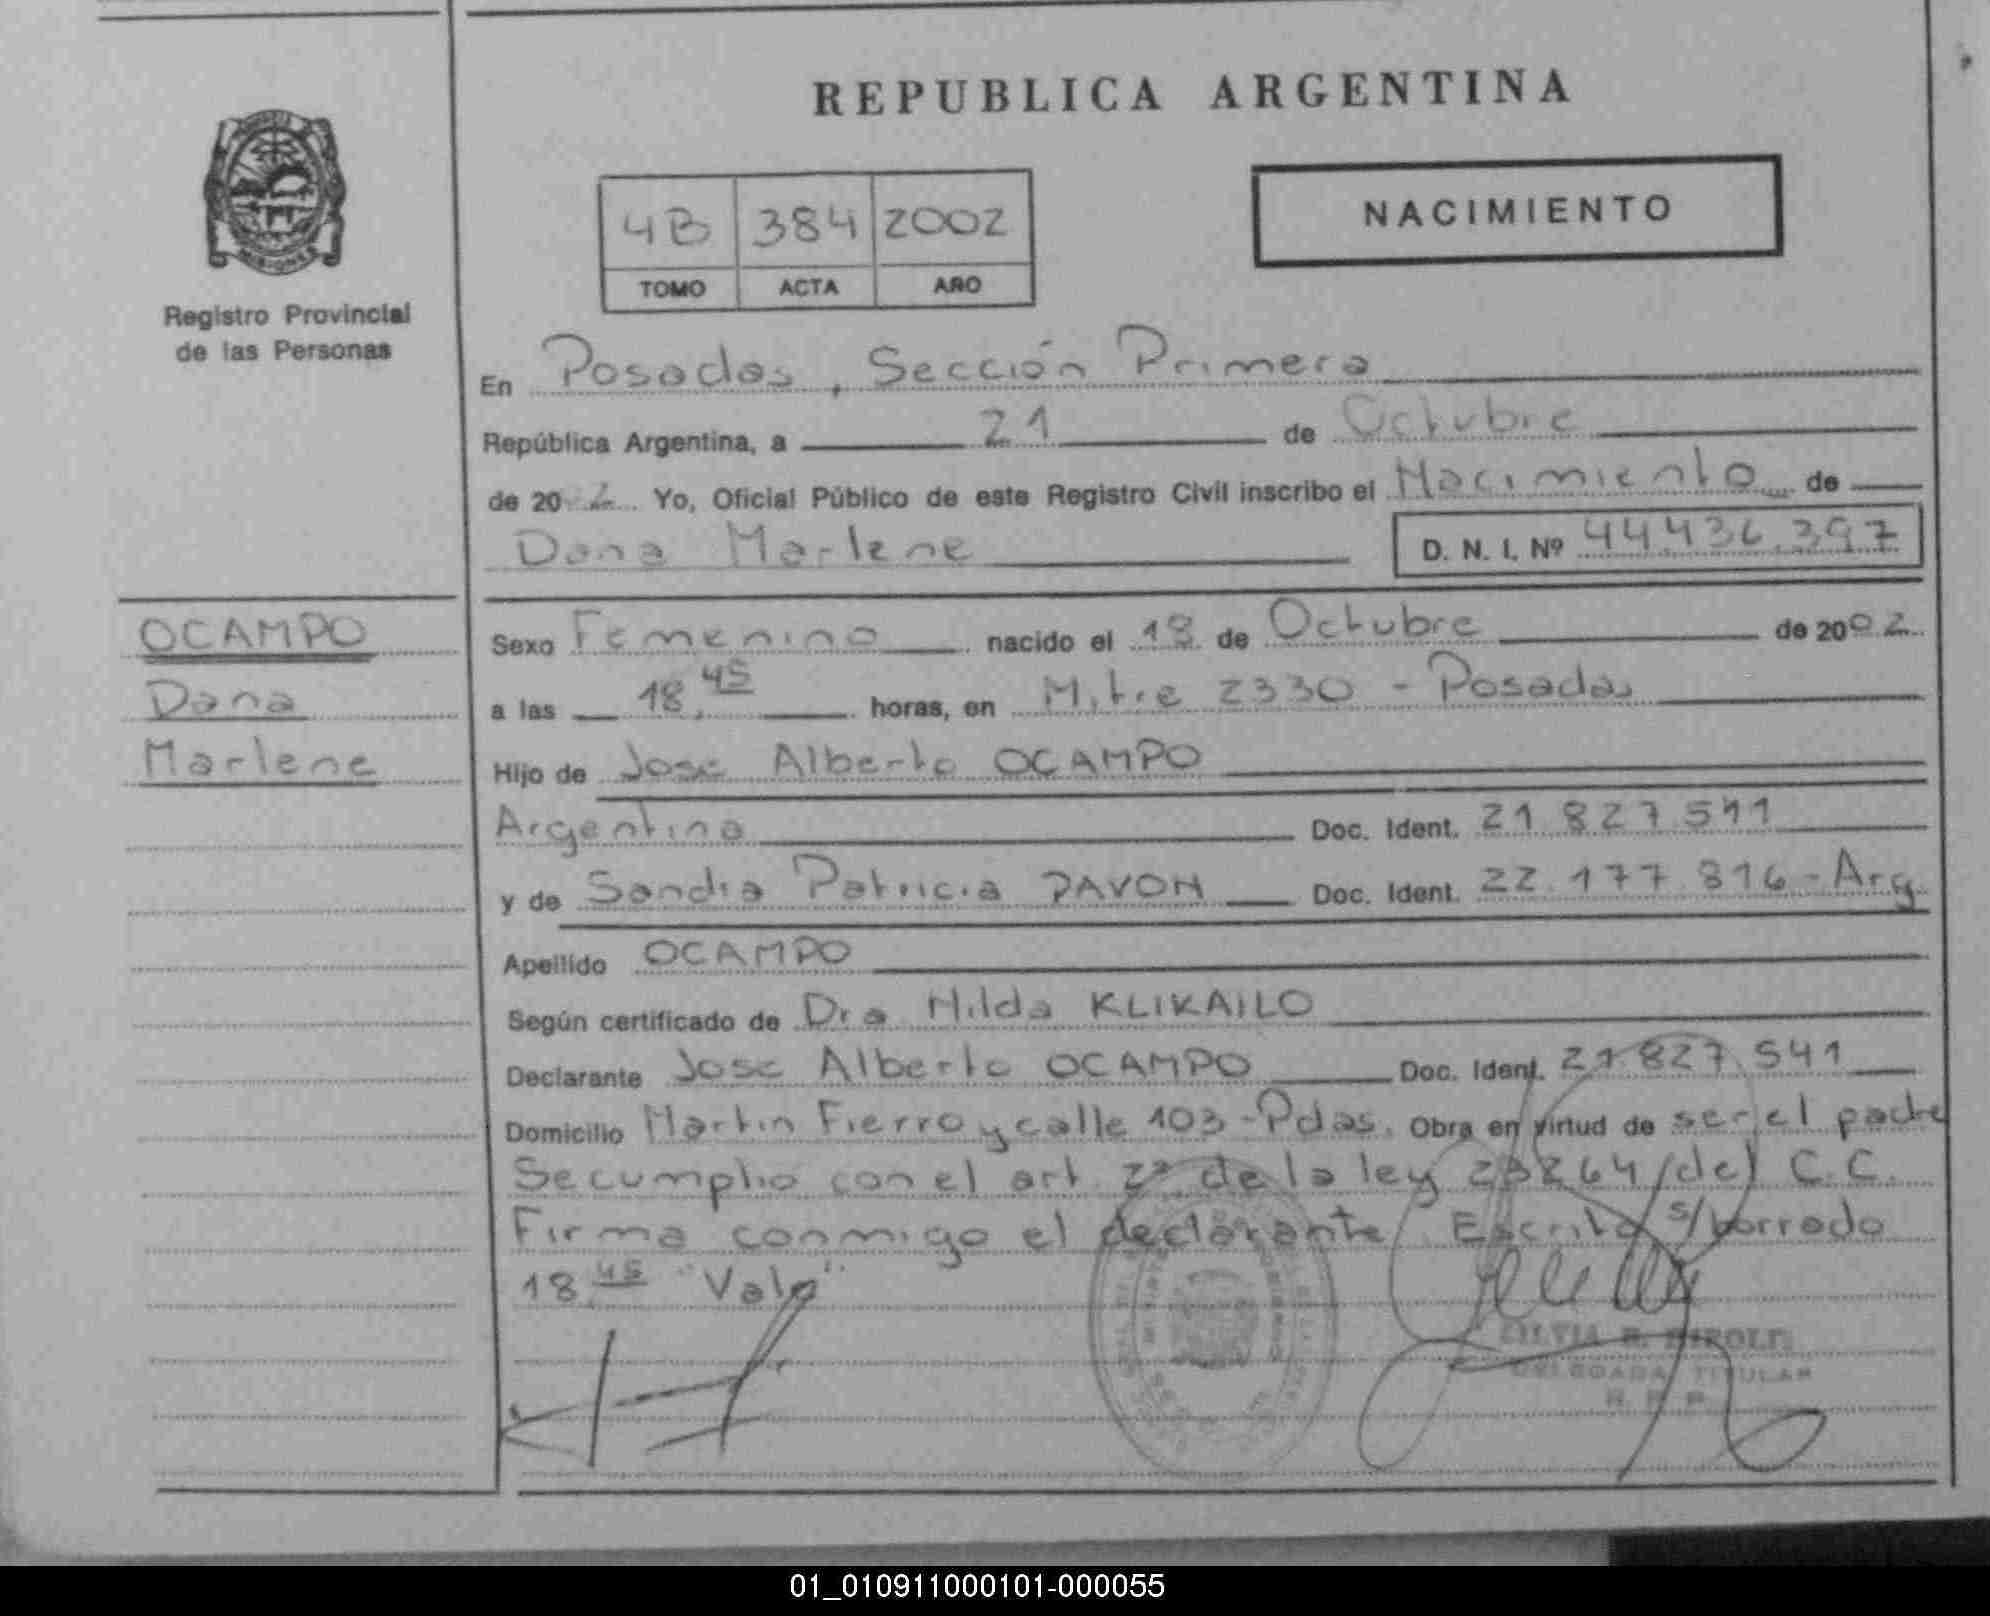 REPUBLICA ARGENTINA
NACIMIENTO
4B 384 2002
TOMO ACTA AÑO
MISIONES
Registro Provincial
de las Personas
En Posadas, Sección Primera
República Argentina, a 21 de Octubre
de 2002 Yo, Oficial Público de este Registro Civil inscribo el Nacimiento de
Dana Marlene D. N. I. Nº 44.436.397
OCAMPO
Dana
Marlene
Sexo Femenino nacido el 18 de Octubre de 2002
a las 18,45 horas, en Mitre 2330 - Posadas
Hijo de Jose Alberto OCAMPO
Argentina Doc. Ident. 21.827.541
y de Sandra Patricia PAVON Doc. Ident. 22.177.816 - Arg
Apellido OCAMPO
Según certificado de Dra Hilda KLIKAILO
Declarante Jose Alberto OCAMPO Doc. Ident. 21.827.541
Domicilio Martin Fierro y calle 103 - Pdas. Obra en virtud de ser el padre
Se cumplio con el art 2º de la ley 23264/del C.C.
Firma conmigo el declarante. Escrito s/borrado
18,45 "Vale"
DELEGADA TITULAR
R. P. P.
01_010911000101-000055